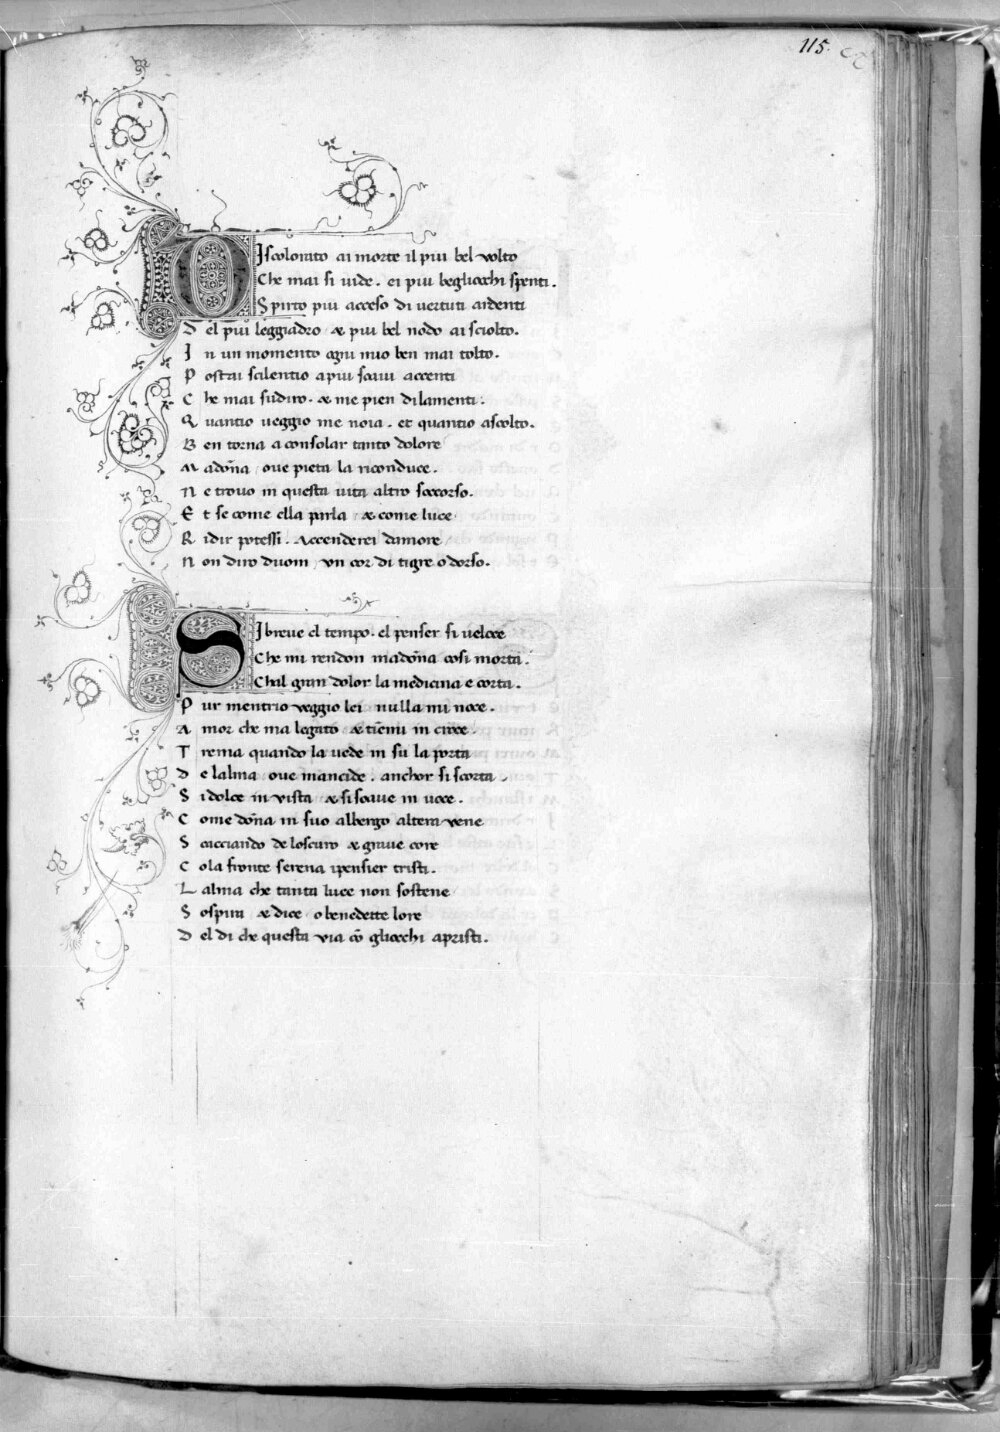 115.
DIscolorato ai morte il piu bel volto
Che mai si uide. ei piu begliocchi spenti.
Spirto piu acceso di vertuti ardenti
Del piu leggiadro & piu bel nodo ai sciolto.
In un momento ogni mio ben mai tolto.
Postai scilentio apiu soaui accenti
Che mai sudiro. & me pien dilamenti:
Quantio ueggio me noia. et quantio ascolto.
Ben torna aconsolar tanto dolore
Madōna oue pieta la riconduce.
Ne trouo in questa uita altro soccorso.
Et se come ella parla & come luce
Ridir potessi. Accenderei damore
Non diro duom, vn cor di tigre odorso.
SI breue el tempo. el penser si ueloce
Che mi rendon madōna cosi morta.
Chal gran dolor la medicina e corta.
Pur mentrio veggio lei nulla mi noce.
Amor che ma legato & tiēmi in croce.
Trema quando la uede in su la porta
Delalma oue mancide. anchor si scorta.
Si dolce in vista & si soaue in uoce.
Come dōna in suo albergo altera vene
Scacciando de loscuro & graue core
Cola fronte serena ipensier tristi.
Lalma che tanta luce non sostene
Sospira & dice o benedette lore
Del di che questa via cō gliocchi apristi.